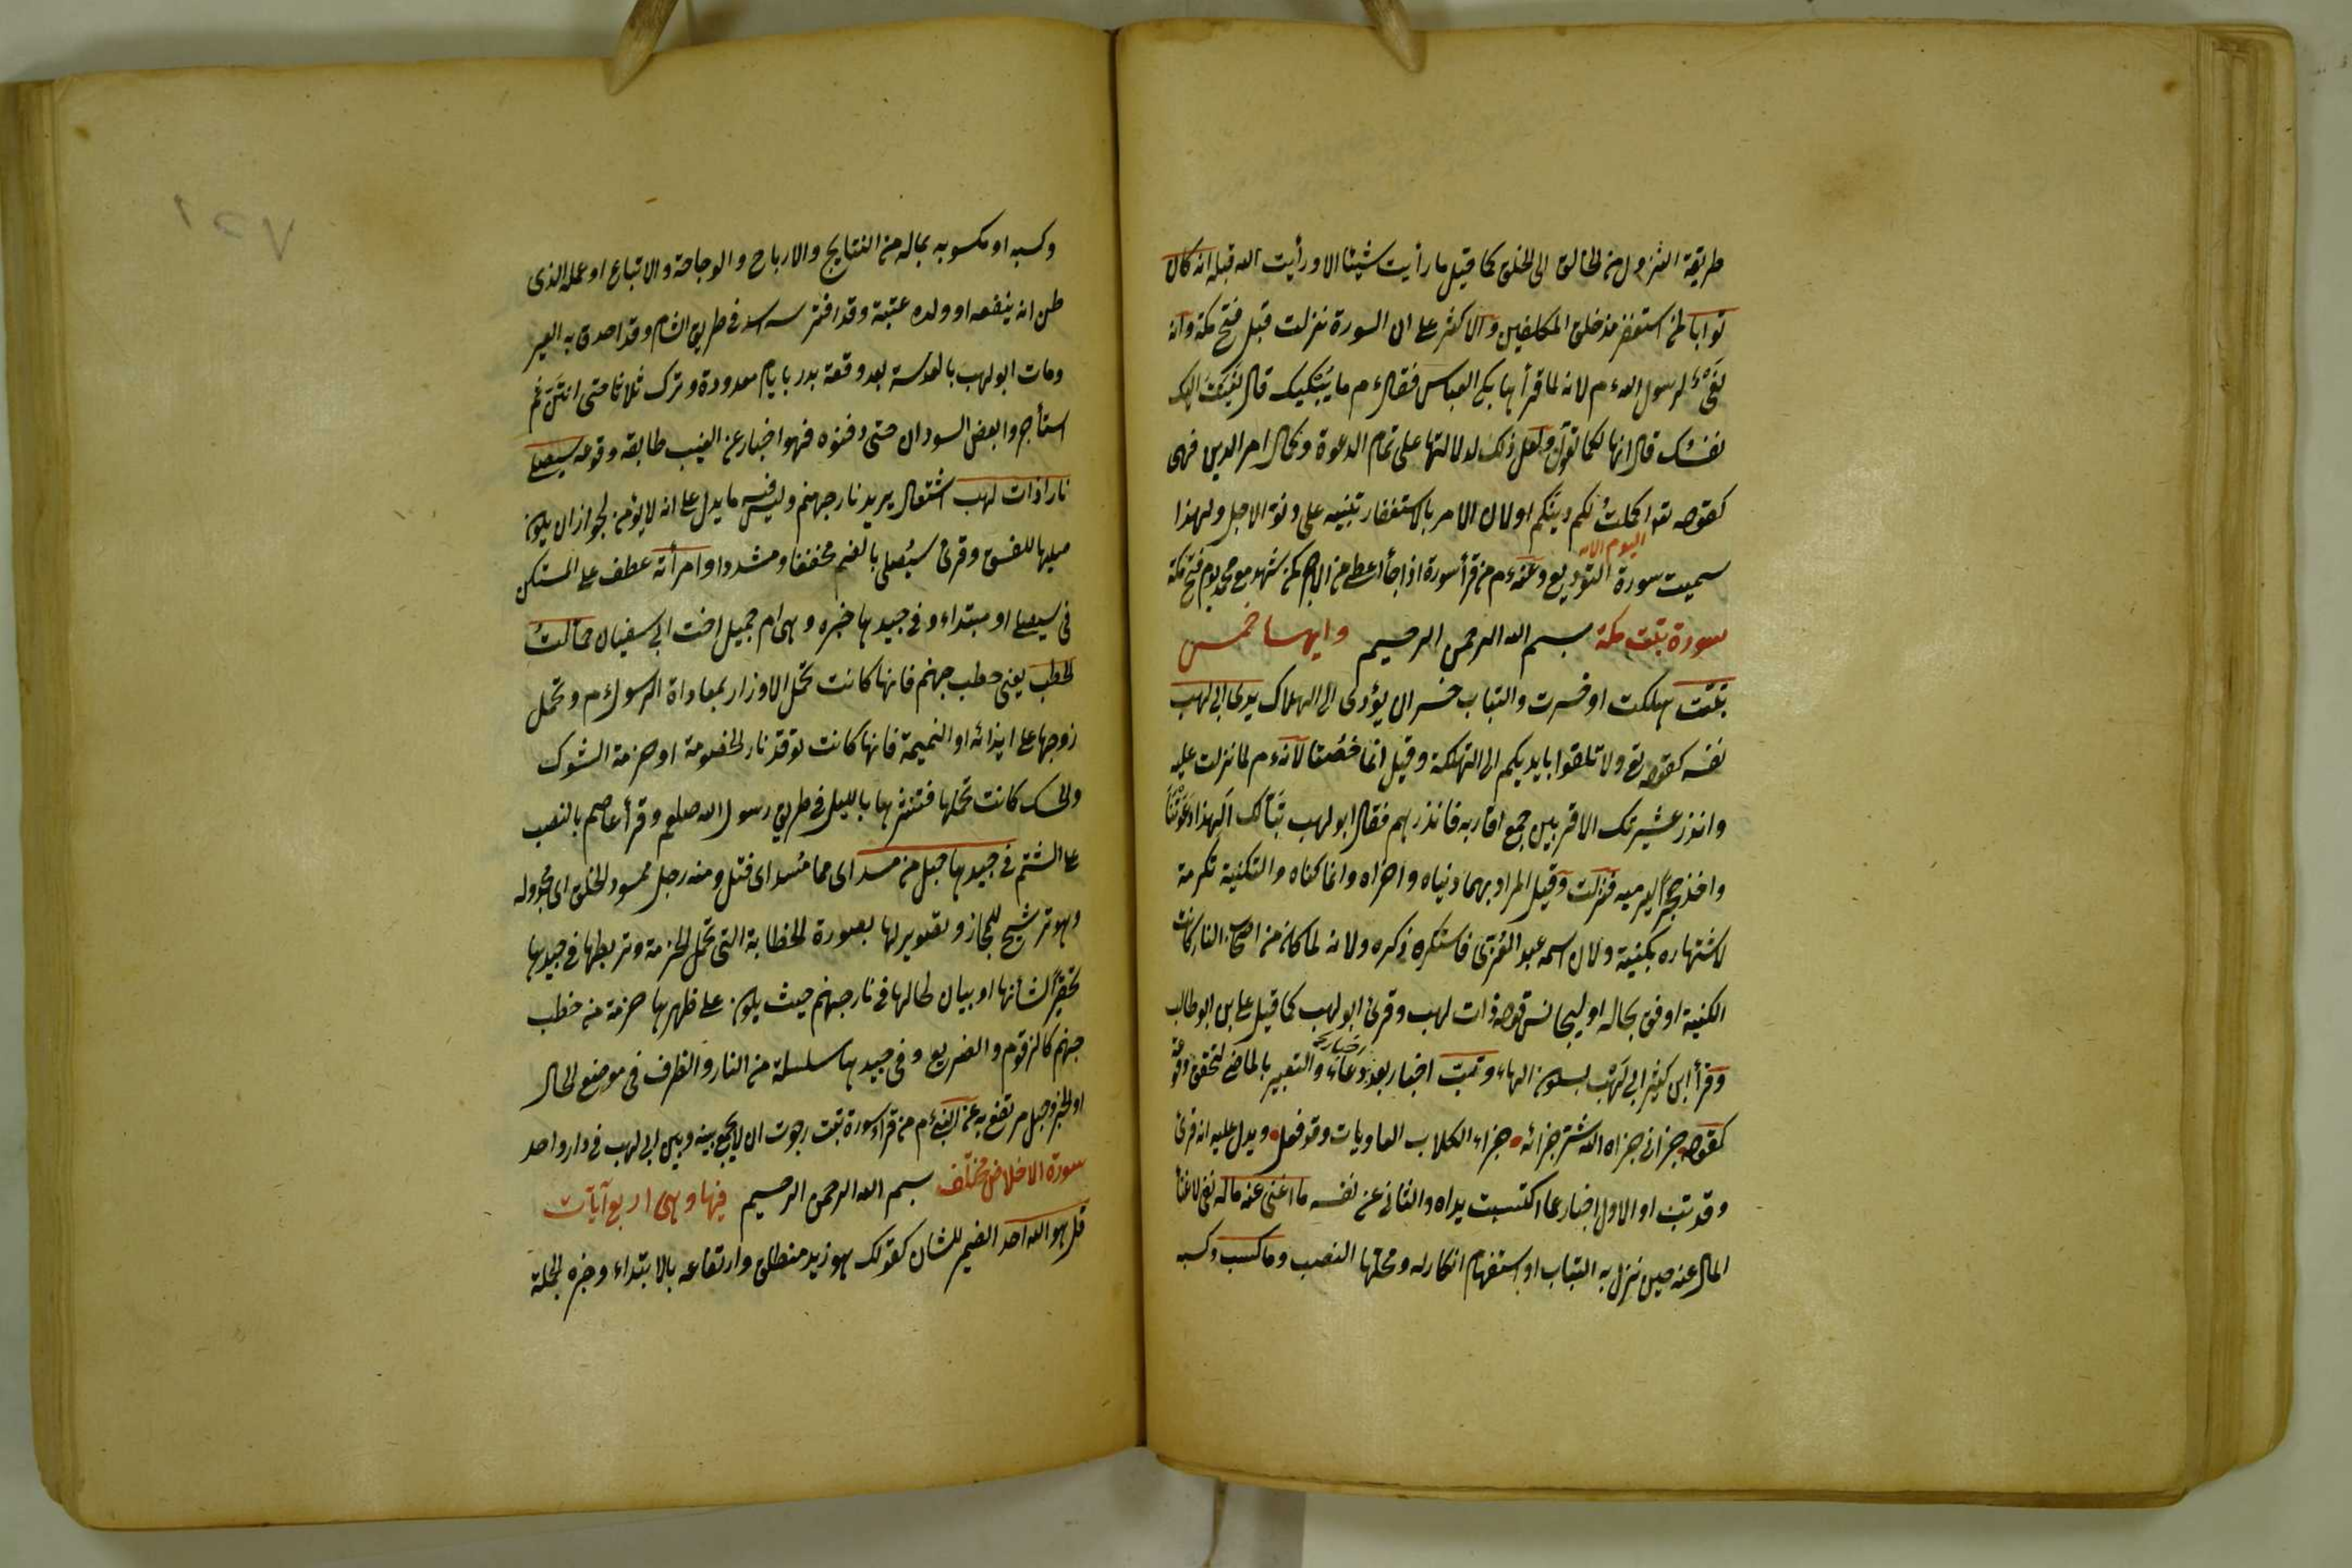 طريقة النزول من الخالق الى الخلق كما قيل ما رأيت شيئا الا ورأيت الله قبله انه كان
توابا لمن استغفر مذ خلق المكلفين والاكثر على ان السورة نزلت قبل فتح مكة وانه
نعى لرسول الله ءم لانه لما قرأها بكى العباس فقال ءم ما يبكيك قال نعيت اليك
نفسك قال انها لكما تقول ولعل ذلك لدلالتها على تمام الدعوة وكمال امر الدين فهى
كقوله تعا اكملت لكم دينكم اولان الامر بالاستغفار تنبيه على دنو الاجل ولهذا
اليوم الاية
سميت سورة التوديع وعنه ءم من قرأ سورة اذا جاء اعطى من الاجر كمن شهد مع محمد يوم فتح مكة
سورة تبت مكة بسم الله الرحمن الرحيم وايها خمس
تبت هلكت او خسرت والتباب خسران يؤدى الى الهلاك يدا ابى لهب
نفسه كقوله تع ولا تلقوا بايديكم الى التهلكة وقيل انما خصتا لانه ءم لما نزلت عليه
وانذر عشيرتك الاقربين جمع اقاربه فانذرهم فقال ابو لهب تبا لك الهذا دعوتنا
واخذ حجرا ليرميه فنزلت وقيل المراد بهما دنياه واخراه وانما كناه والتكنية تكرمة
لاشتهاره بكنيته ولان اسمه عبد العزى فاستكره ذكره ولانه لما كان من اصحاب النار كانت
الكنية اوفق بحاله او ليجانس قوله ذات لهب وقرئ ابو لهب كما قيل على بن ابو طالب
وقرأ ابن كثير ابى لهب بسكون الهاء وتب اخبار بعد دعاء والتعبير بالماضى لتحقق وقوعه
كقوله جزانى جزاه الله شر جزائه جزاء الكلاب العاويات وقد فعل ويدل عليه انه قرئ
وقد تب او الاول اخبار عما اكتسبت يداه والثانى عن نفسه ما اغنى عنه ماله نفى لاغناء
المال عنه حين نزل به التباب او استفهام انكار له ومحلها النصب وما كسب وكسبه
وكسبه او مكسوبه بماله من النتايج والارباح والوجاهة والاتباع او عمله الذى
ظن انه ينفعه او ولده عتبة وقد افترسه اسد فى طريق الشام وقد احدق به العير
ومات ابو لهب بالعدسة بعد وقعة بدر بايام معدودة وترك ثلاثا حتى انتن ثم
استأجروا بعض السودان حتى دفنوه فهو اخبار عن الغيب طابقه وقوعه سيصلى
نارا ذات لهب اشتعال يريد نار جهنم وليس فيه ما يدل على انه لا يؤمن لجواز ان يكون
صليها للفسق وقرئ سيصلى بالضم مخففا ومشددا وامرأته عطف على المستكن
فى سيصلى او مبتداء وفى جيدها خبره وهى ام جميل اخت ابى سفيان حمالت
الحطب يعنى حطب جهنم فانها كانت تحمل الاوزار بمعاداة الرسول ءم وتحمل
زوجها على ايذائه او النميمة فانها كانت توقد نار الخصومة او حزمة الشوك
والحسك كانت تحملها فتنثرها بالليل فى طريق رسول الله صلعم وقرأ عاصم بالنصب
على الشتم فى جيدها حبل من مسد اى مما مسد اى فتل ومنه رجل ممسود الخلق اى مجدوله
وهو ترشيح للمجاز وتصوير لها بصورة الحطابة التى تحمل الحزمة وتربطها فى جيدها
تحقيرا لشأنها او بيان لحالها فى نار جهنم حيث يكون على ظهرها حزمة من حطب
جهنم كالزقوم والضريع وفى جيدها سلسلة من النار والظرف فى موضع الحال
او الخبر وحبل مرتفع به عن النبى ءم من قرأ سورة تبت رجوت ان لا يجمع بينه وبين ابى لهب فى دار واحد
سورة الاخلاص مختلف بسم الله الرحمن الرحيم فيها وهى اربع آيات
قل هو الله احد الضمير للشان كقولك هو زيد منطلق وارتفاعه بالابتداء وخبره الجملة